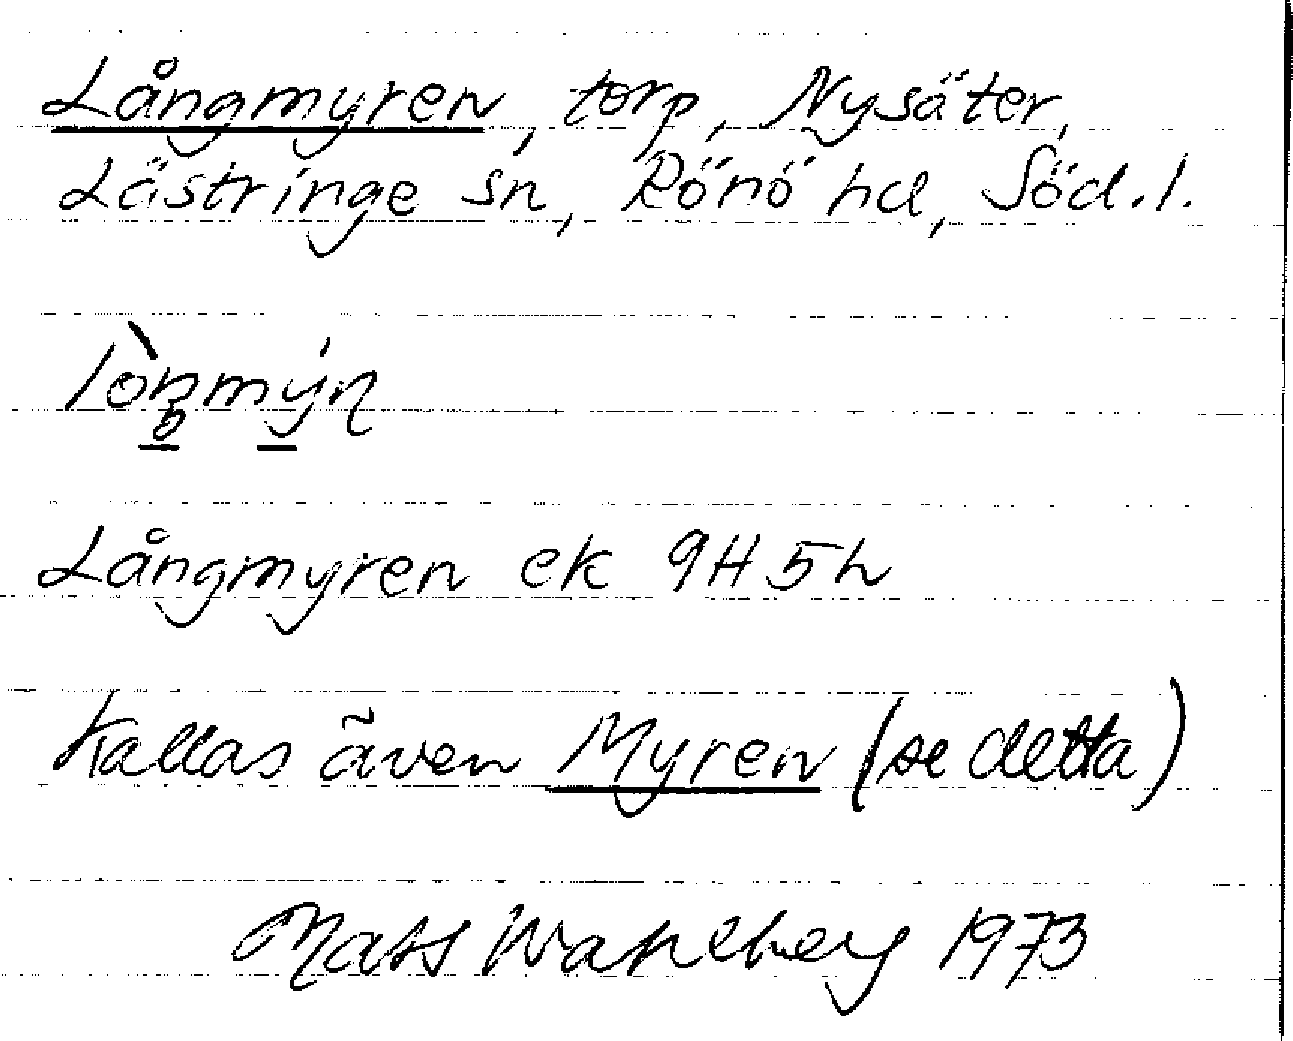 Långmyren, torp, Nysäter,
Lästringe sn, Rönö hd, Söd.l.
Långmyren ek 9H5h
Kallas även Myren (se detta)
Mats Wahlberg 1973